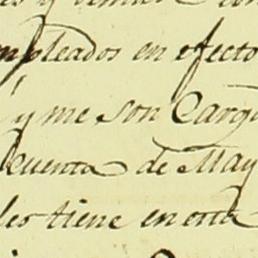 y
mpleados en efecto
y me son Carg
cuenta de May
les tiene en esta